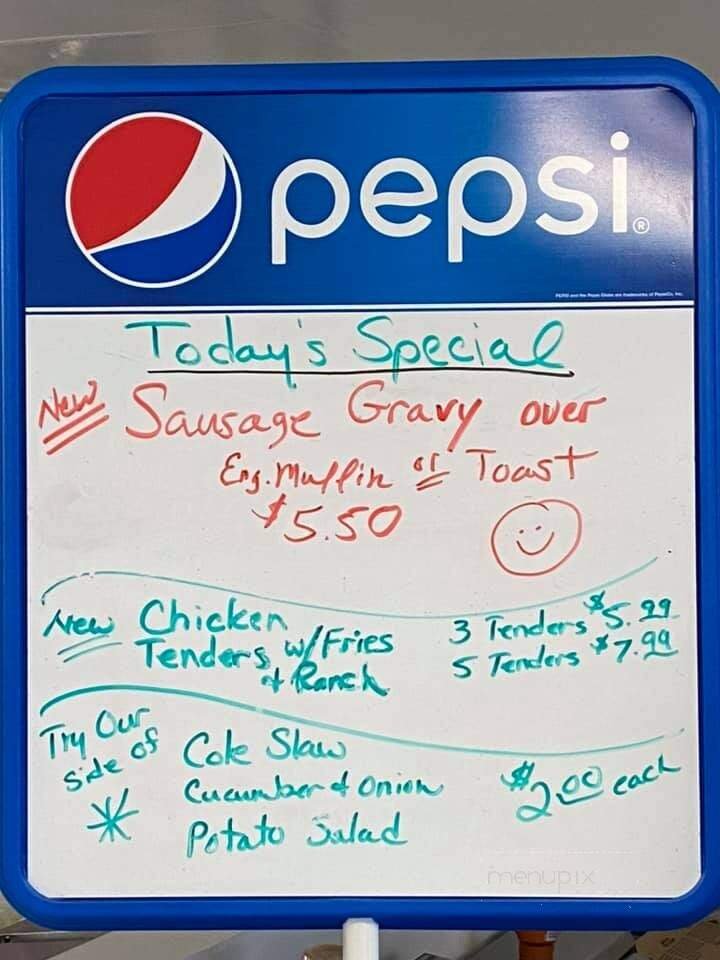 pepsi®
Today's Special
New Sausage Gravy over
Eng. Muffin or Toast
$5.50
New Chicken
Tenders w/Fries
+ Ranch
3 Tenders $5.99
5 Tenders $7.99
Try Our
Side of
Cole Slaw
Cucumber & Onion
Potato Salad
$2.00 each
menupix